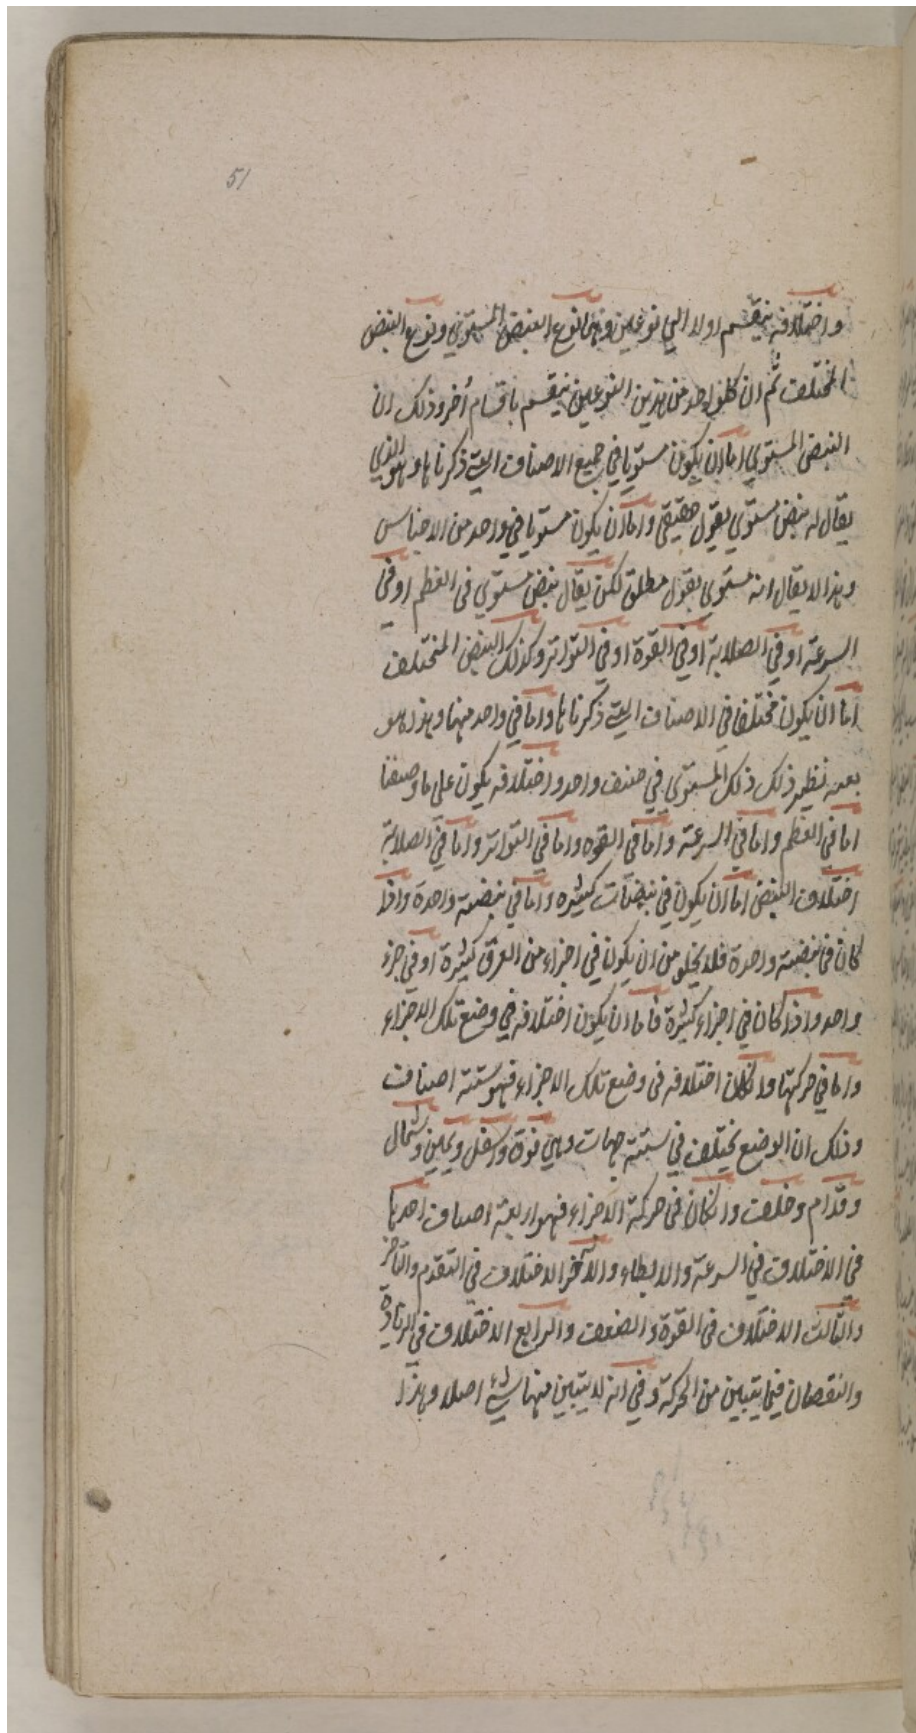 51
واختلافه ينقسم اولا الي نوعين وهي النوع النبض المستوي ونوع النبض
المختلف ثم ان كلواحد من هذين النوعين ينقسم باقسام أخر وذلك ان
النبض المستوي اما ان يكون مستويا في جميع الاصناف التي ذكرناها وهو الذي
يقال له نبض مستوي بقول حقيقي واما ان يكون مستويا في واحد من الاجناس
وهذا لا يقال انه مستوي بقول مطلق لكن يقال نبض مستوي في العظم او في
السرعة او في الصلابة او في القوة او في التواتر وكذلك النبض المختلف
اما ان يكون مختلفا في الاصناف التي ذكرناها واما في واحد منها وهذا هو
بعينه نظير ذلك ذلك المستوي في صنف واحد واختلافه يكون على ما وصفنا
اما في العظم واما في السرعة واما في القوه واما في التواتر واما في الصلابة
اختلاف النبض اما ان يكون في نبضات كثيره واما في نبضة واحدة واذا
كان في نبضة واحدة فلا يخلو من ان يكون في اجزاء من العرق كثيرة او في جزء
واحد واذا كان في اجزاء كثيرة فاما ان يكون اختلافه في وضع تلك الاجزاء
واما في حركتها وان كان اختلافه في وضع تلك الاجزاء فهو ستة اصناف
وذلك ان الوضع يختلف في ستة جهات وهي فوق واسفل ويمين وشمال
وقدام وخلف وان كان في حركة الاجزاء فهو اربعة اصناف احدها
في الاختلاف في السرعة والابطاء والآخر الاختلاف في التقدم والتأخر
والثالث الاختلاف في القوة والضعف والرابع الاختلاف في الزيادة
والنقصان فيما يتبين من الحركة وفي انه لا يتبين منها شيء اصلا وهذا